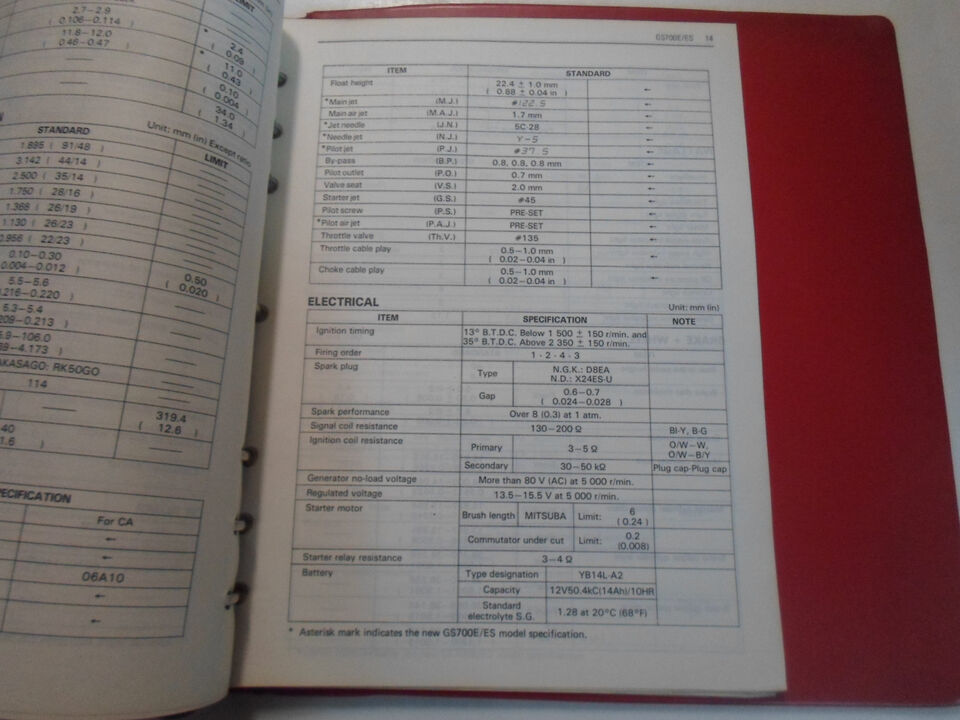 LIMIT
2.7–2.9
( 0.106–0.114 )
11.8–12.0
( 0.46–0.47 )
* 2.4
( 0.09 )
* 11.0
( 0.43 )
0.10
( 0.004 )
34.0
( 1.34 )
Unit: mm (in) Except ratio
STANDARD LIMIT
1.895 ( 91/48 )
3.142 ( 44/14 )
2.500 ( 35/14 )
1.750 ( 28/16 )
1.368 ( 26/19 )
1.130 ( 26/23 )
0.956 ( 22/23 )
0.10–0.30
0.004–0.012 )
0.50
( 0.020 )
5.5–5.6
.216–0.220 )
5.3–5.4
209–0.213 )
5.9–106.0
–4.173 )
AKASAGO: RK50GO
114
319.4
( 12.6 )
40
1.6 )
PECIFICATION
For CA
←
06A10
←
←
GS700E/ES 14
ITEM STANDARD
Float height 22.4 ± 1.0 mm ←
( 0.88 ± 0.04 in )
*Main jet (M.J.) #122.5 ←
Main air jet (M.A.J.) 1.7 mm ←
*Jet needle (J.N.) 5C-28 ←
*Needle jet (N.J.) Y-5 ←
*Pilot jet (P.J.) #37.5 ←
By-pass (B.P.) 0.8, 0.8, 0.8 mm ←
Pilot outlet (P.O.) 0.7 mm ←
Valve seat (V.S.) 2.0 mm ←
Starter jet (G.S.) #45 ←
Pilot screw (P.S.) PRE-SET ←
*Pilot air jet (P.A.J.) PRE-SET ←
Throttle valve (Th.V.) #135 ←
Throttle cable play 0.5–1.0 mm ←
( 0.02–0.04 in )
Choke cable play 0.5–1.0 mm ←
( 0.02–0.04 in )
ELECTRICAL Unit: mm (in)
ITEM SPECIFICATION NOTE
Ignition timing 13° B.T.D.C. Below 1 500 ± 150 r/min. and
35° B.T.D.C. Above 2 350 ± 150 r/min.
Firing order 1·2·4·3
Spark plug Type N.G.K.: D8EA
N.D.: X24ES-U
Gap 0.6–0.7
( 0.024–0.028 )
Spark performance Over 8 (0.3) at 1 atm.
Signal coil resistance 130–200 Ω Bl-Y, B-G
Ignition coil resistance Primary 3–5 Ω O/W–W,
O/W–B/Y
Secondary 30–50 kΩ Plug cap-Plug cap
Generator no-load voltage More than 80 V (AC) at 5 000 r/min.
Regulated voltage 13.5–15.5 V at 5 000 r/min.
Starter motor Brush length MITSUBA Limit: 6
( 0.24 )
Commutator under cut Limit: 0.2
(0.008)
Starter relay resistance 3–4 Ω
Battery Type designation YB14L-A2
Capacity 12V50.4kC(14Ah)/10HR
Standard
electrolyte S.G. 1.28 at 20°C (68°F)
* Asterisk mark indicates the new GS700E/ES model specification.